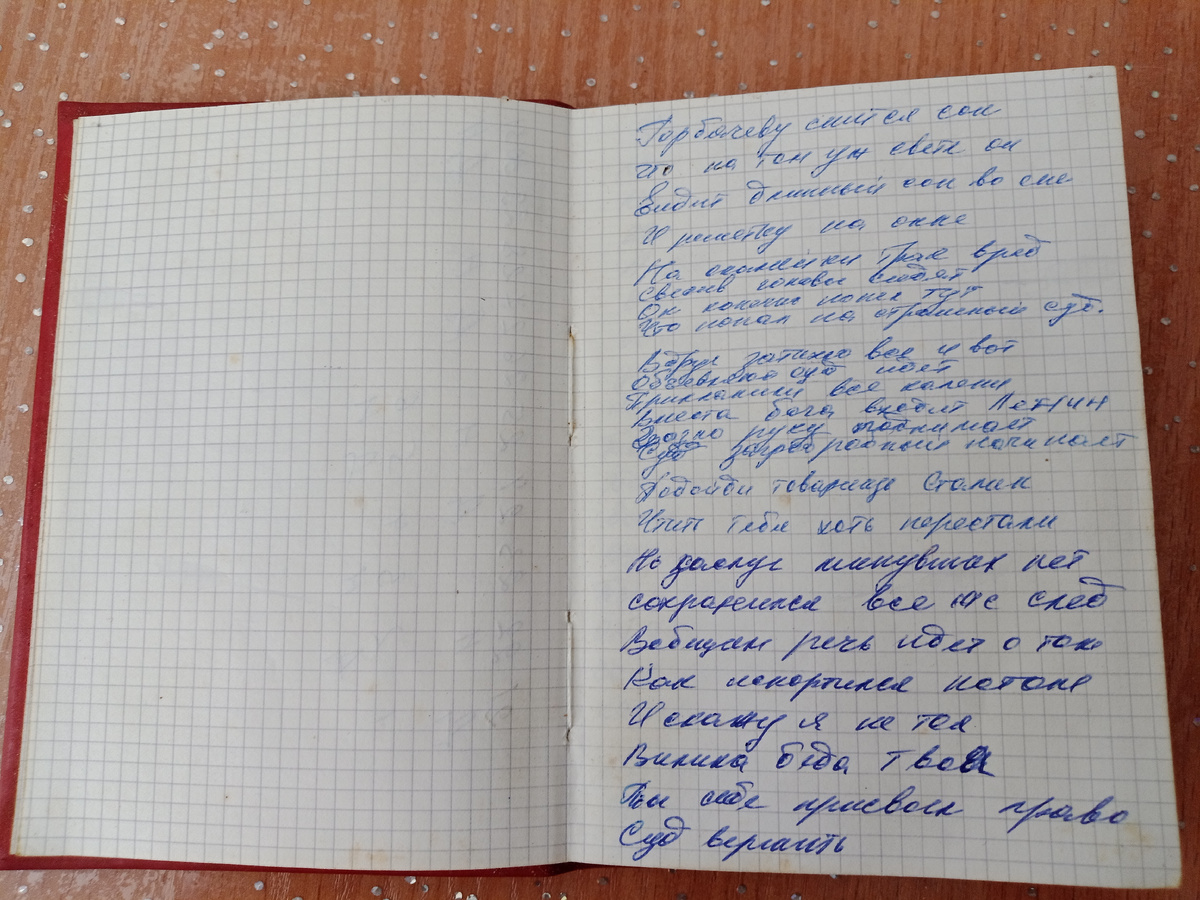 Горбачеву снится сон
Что на том уж свете он
Видит длинный сон во сне
И решетку на окне
На скамейки Трое в ряд
свесив головы сидят
Он конечно понял тут
Что попал на страшный суд.
Вдруг затихло все и вот
Обьевляют суд идет
Приклонили все колени
Вместа бога входит Ленин
Грозно руку поднимает
Суд загробный начинает
Подойди товарище Сталин
Чтить тебя хоть перестали
Но заслуг минувших нет
сохранился все же след
Вобщем речь идет о том
Как испортился потом
И скажу я не тая
Вилика беда твоя
Ты себе присвоил право
Суд вершить